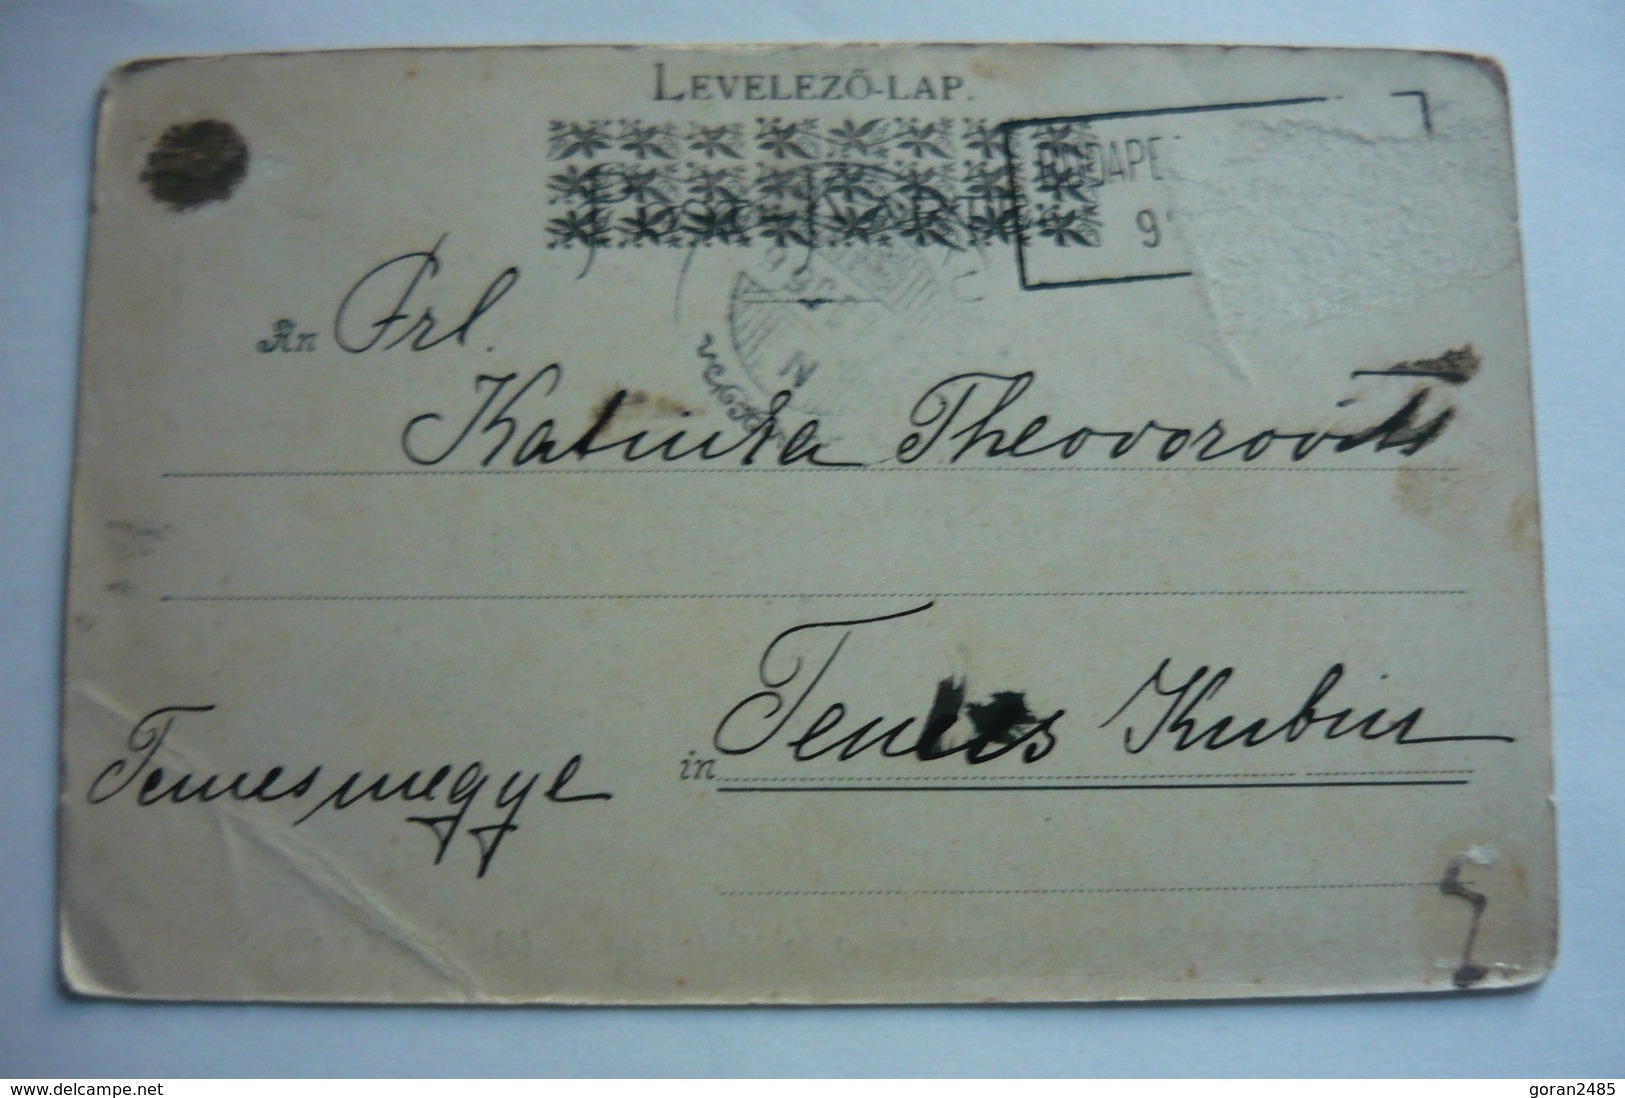 LEVELEZŐ-LAP.
BUDAPE
9
An Frl.
Katinka Theodorovits
in Temes Kubin
Temesmegye
www.delcampe.net
goran2485